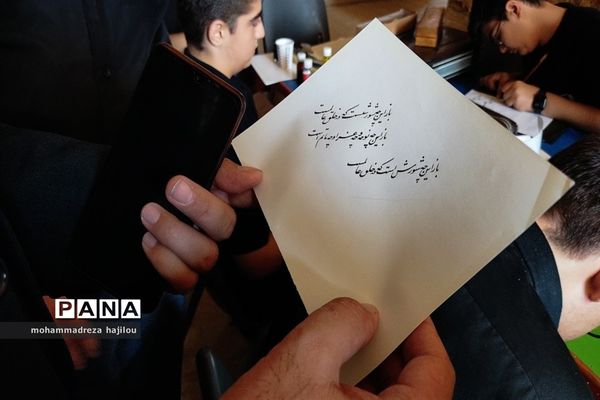 باز این چه شورش است که در خلق عالم است
باز این چه نوحه و چه عزا و چه ماتم است
باز این چه شورش است که در خلق عالم
PANA
mohammadreza hajilou